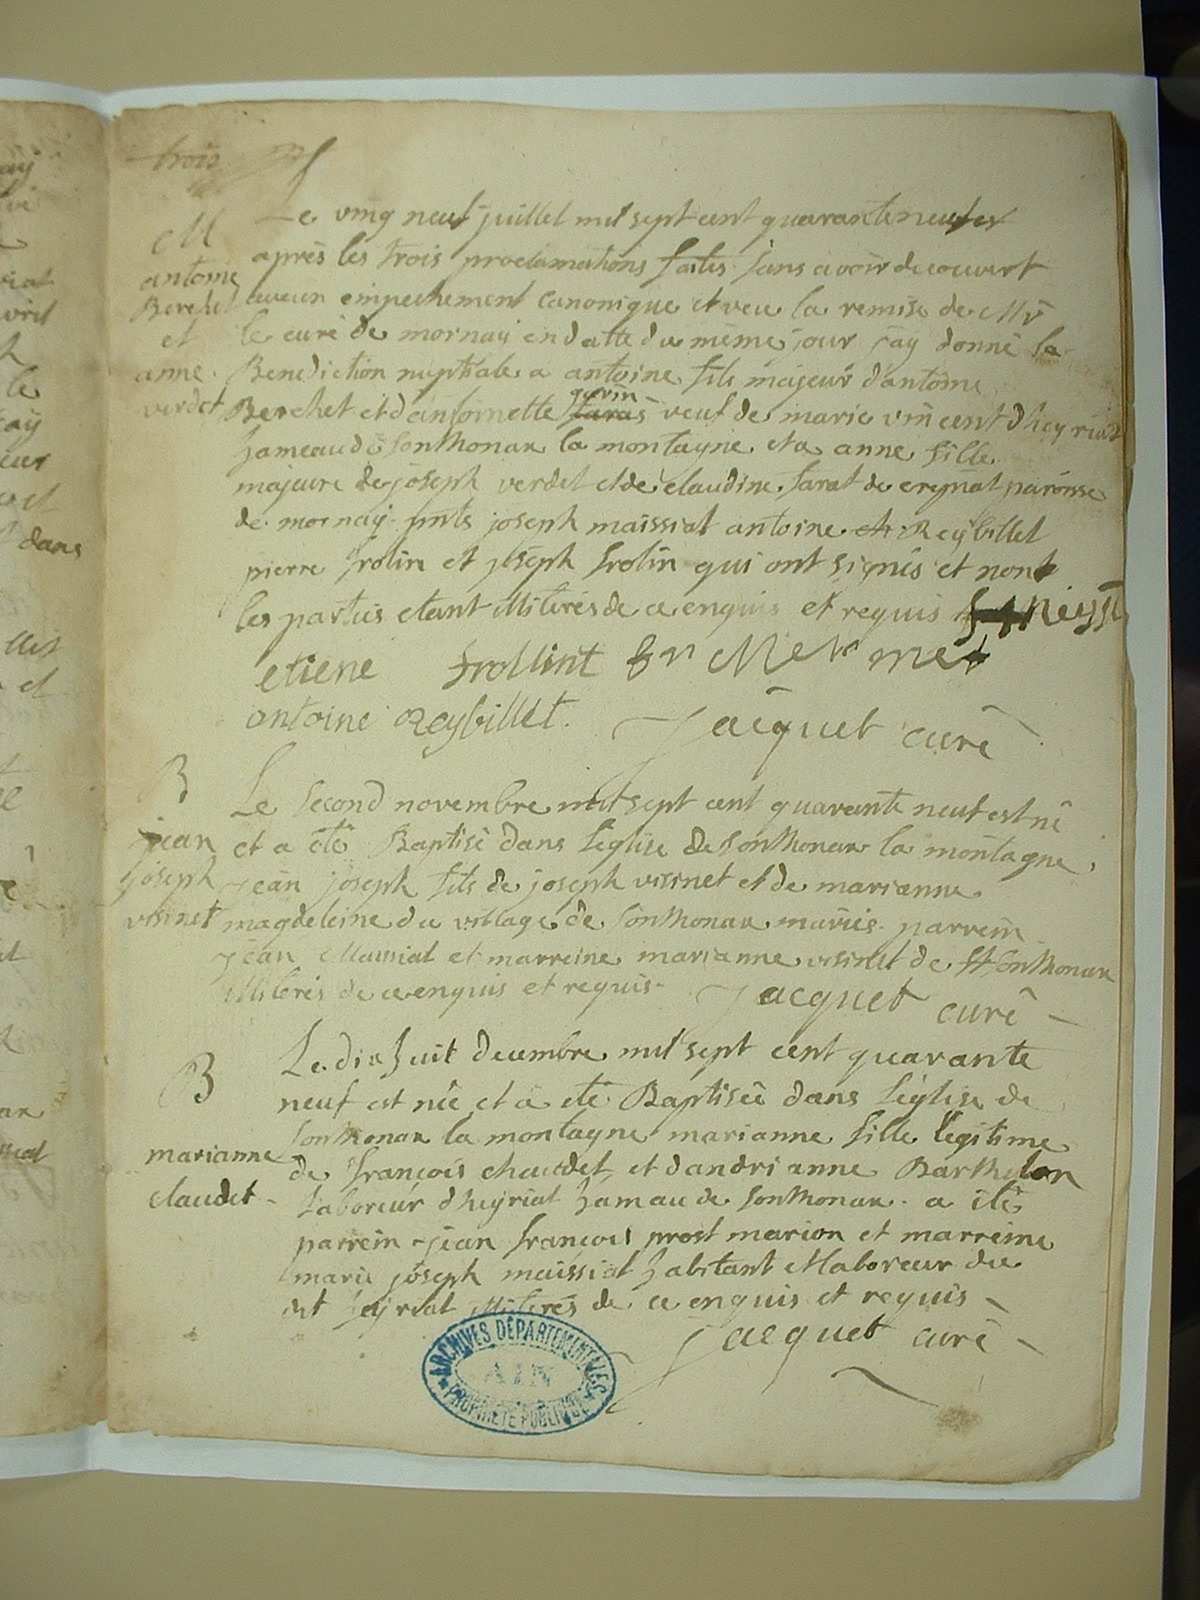 trois
M
antoine
Berchet
et
anne
verdet
Le vingt neuf juillet mil sept cent quarante neuf et
après les trois proclamations faites sans avoir decouvert
aucun empechement canonique et veu la remise de Mr
le curé de mornay en datte du même jour j'ay donné la
Benediction nuptiale a antoine fils majeur d'antoine
gurin
Berchet et d'antoinette veuf de marie vincent d'heyriat
hameau de sonthonax la montagne et a anne fille
majeure de joseph verdet et de claudine farat de crepiat paroisse
de mornay pnts joseph maissiat antoine Reybillet
pierre frolin et joseph frolin qui ont signés et non
les parties etant illiterés de ce enquis et requis
etiene frollint
antoine Reybillet. jacquet curé
B
jean
joseph
visinet
Le second novembre mil sept cent quarante neuf est né
et a été Baptisé dans l'eglise de sonthonax la montagne
jean joseph fils de joseph visinet et de marianne
magdeleine du village de sonthonax mariés parrein
jean Maissiat et marreine marianne visinet de sonthonax
illiterés de ce enquis et requis. jacquet curé
B
marianne
claudet
Le dix huit decembre mil sept cent quarante
neuf est née et a été Baptisée dans l'eglise de
sonthonax la montagne marianne fille legitime
de françois chaudet et d'andrianne Barthelon
laboreur d'heyriat hamau de sonthonax a été
parrein jean françois prost marion et marreine
marie joseph maissiat habitant et laboreur du
dit heyriat illiterés de ce enquis et requis
jacquet curé
ARCHIVES DÉPARTEMENTALES
AIN
PROPRIÉTÉ PUBLIQUE